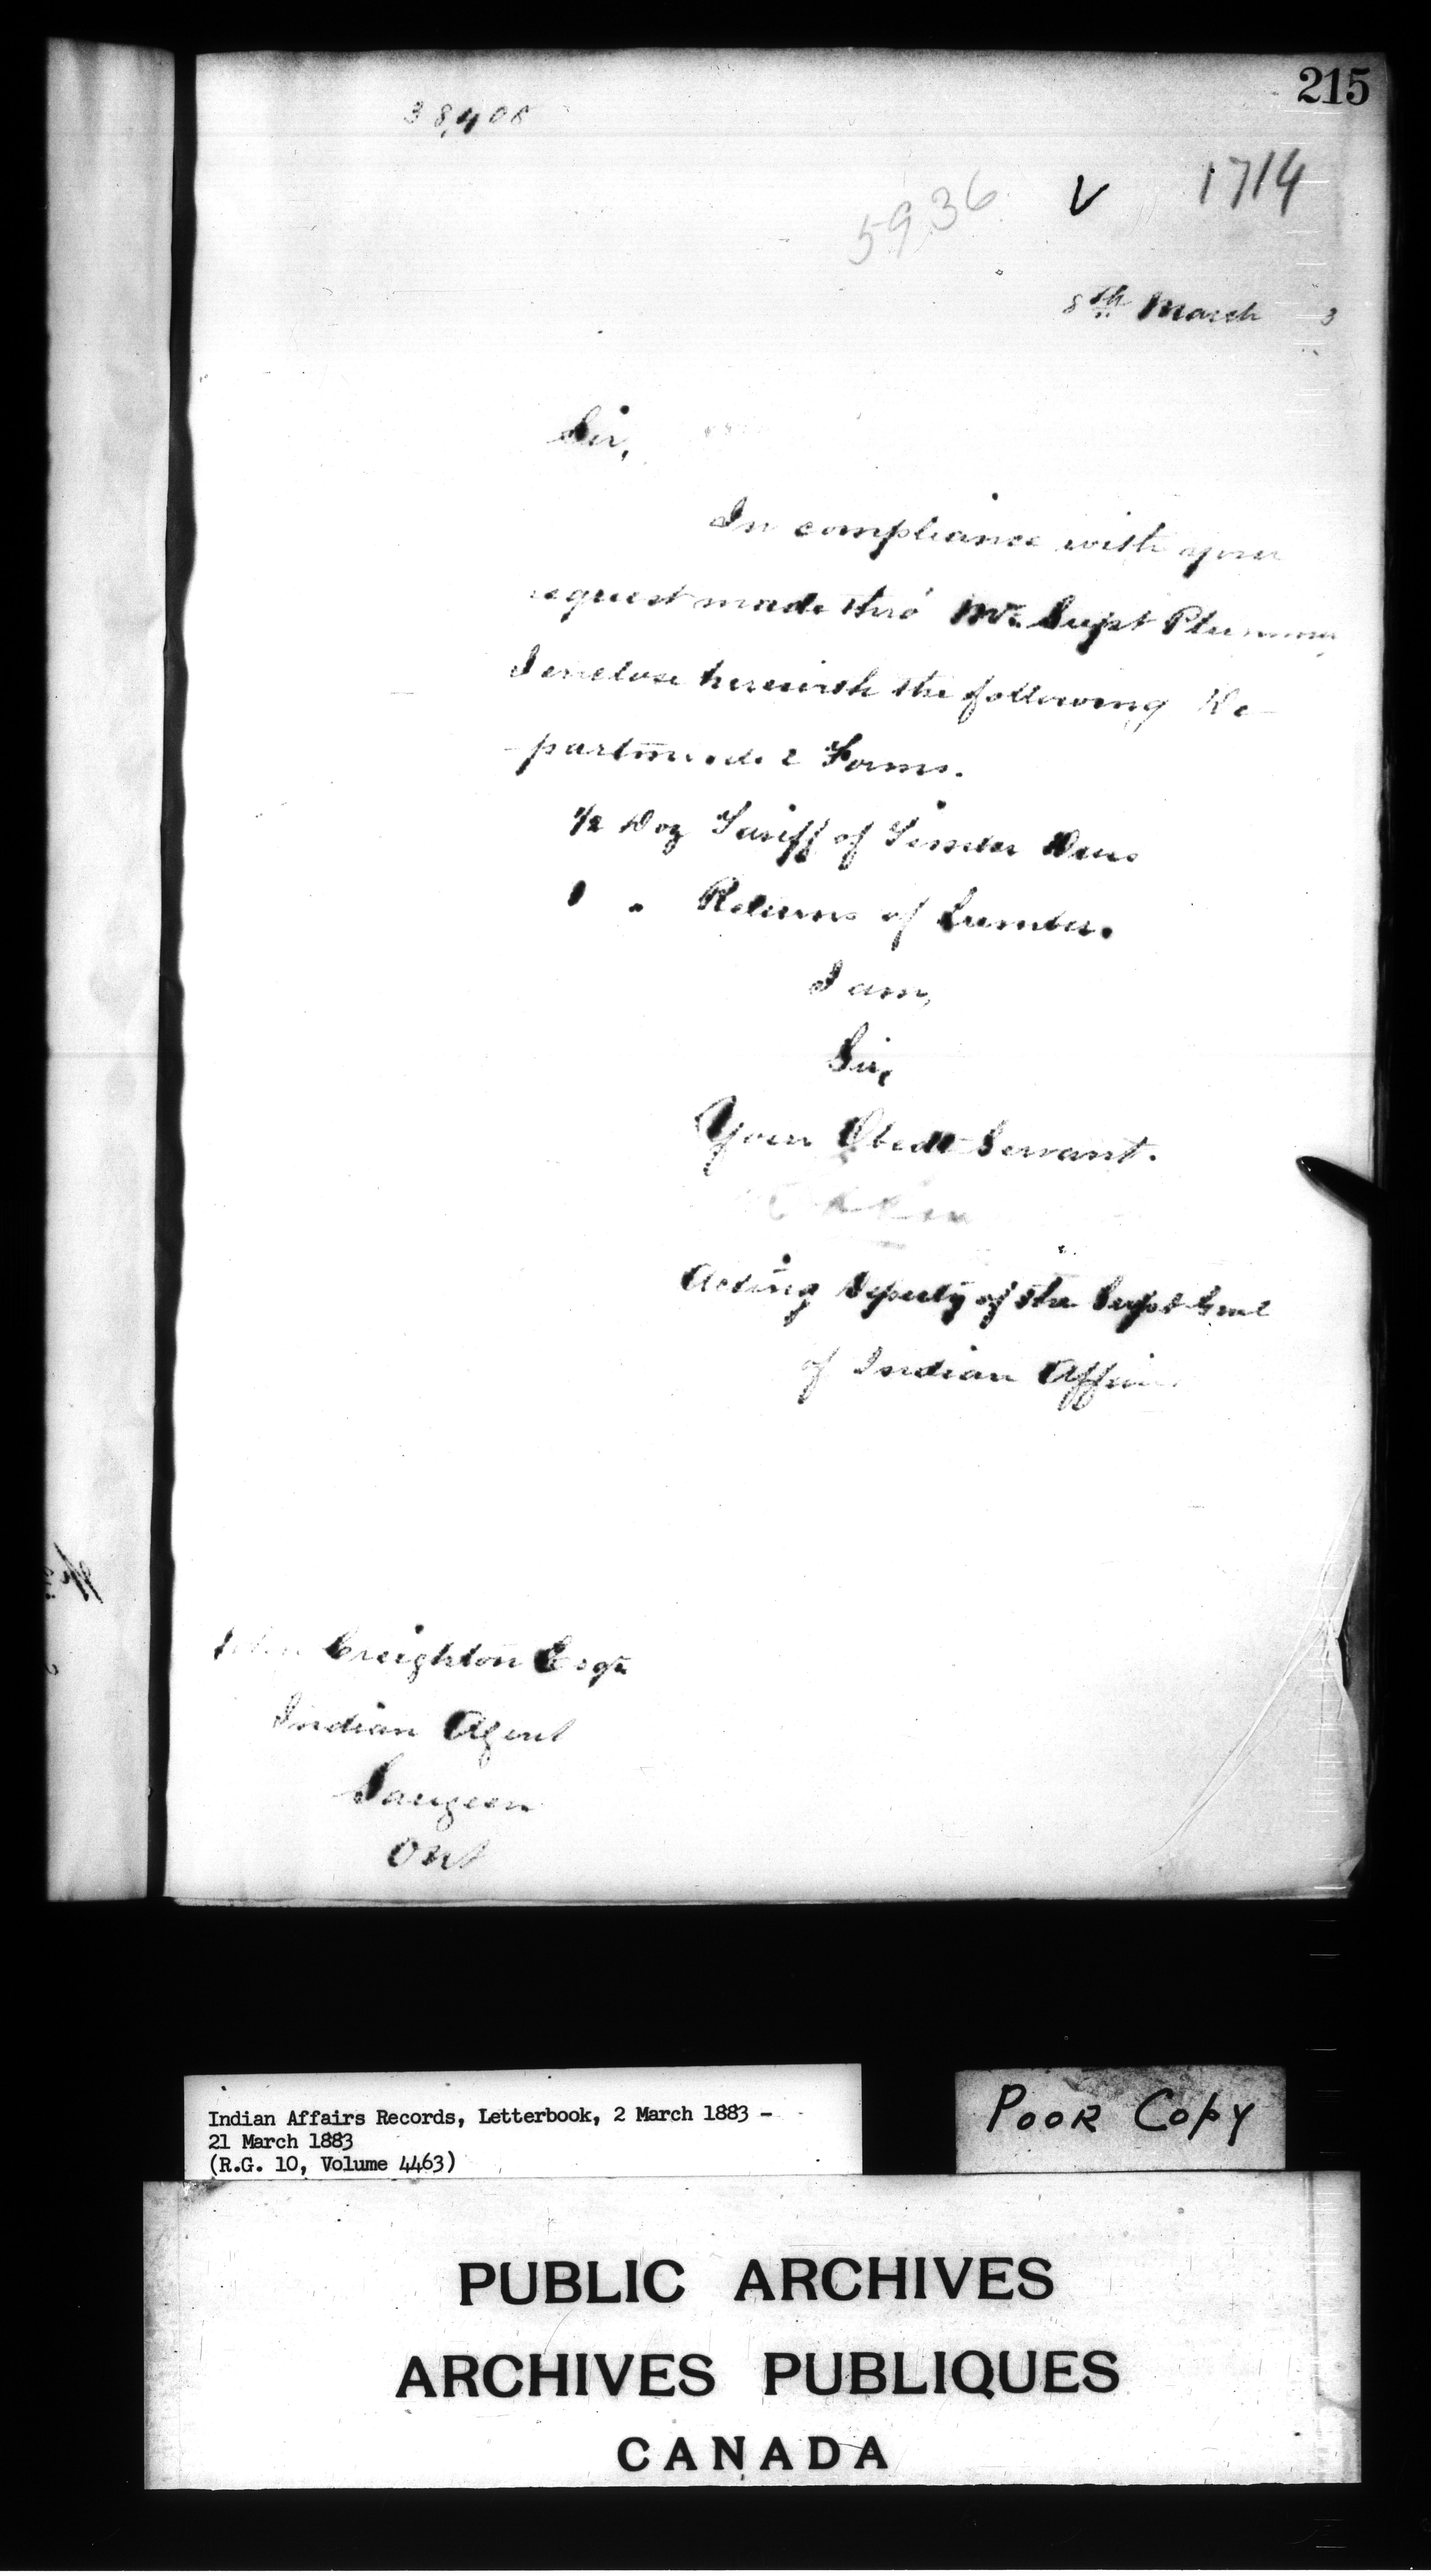 215
38,408
5936 V 1714
8th March 3
Sir,
In compliance with your
request made thro' Mr. Supt Plummer
I enclose herewith the following De-
-partmental Forms.
1/2 Doz Tariff of Timber Dues
1 " Returns of Lumber.
I am,
Sir,
Your Obedt Servant.
Acting Deputy of the Supt Genl
of Indian Affairs
John Creighton Esqre
Indian Agent
Saugeen
Ont
Indian Affairs Records, Letterbook, 2 March 1883 -
21 March 1883
(R.G. 10, Volume 4463)
POOR COPY
PUBLIC ARCHIVES
ARCHIVES PUBLIQUES
CANADA